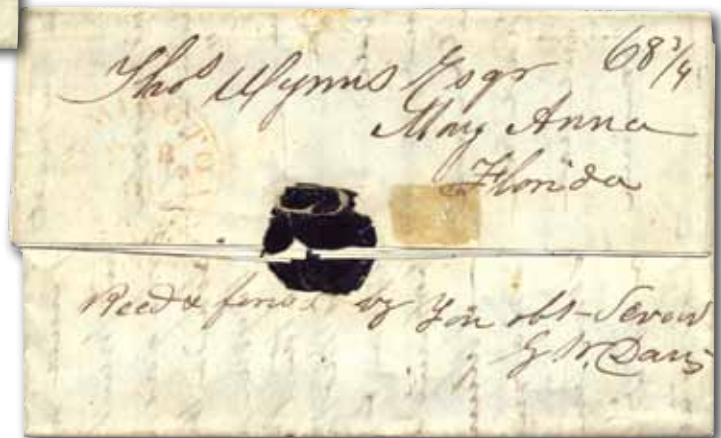 Thos Wynns Esqr 68 3/4
Mary Anna
Florida
Recd & forwd by Your obt Servt
G W. Davis